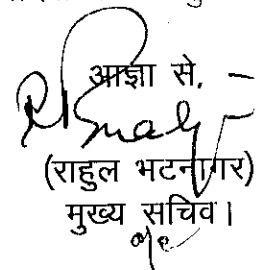 आज्ञा से,
(राहुल भटनागर)
मुख्य सचिव।